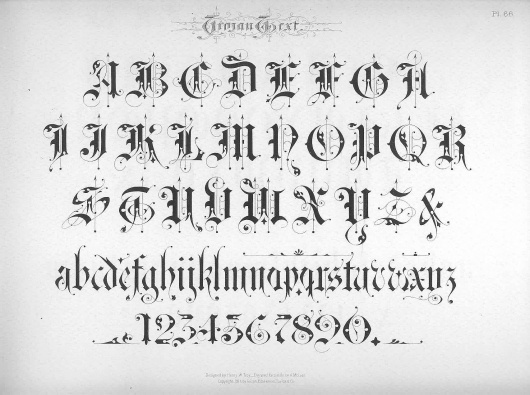 Trojan Text
Pl. 66
A B C D E F G H
I J K L M N O P Q R
S T U V W X Y Z &
abcdefghijklmnopqrstuvwxyz
1234567890.